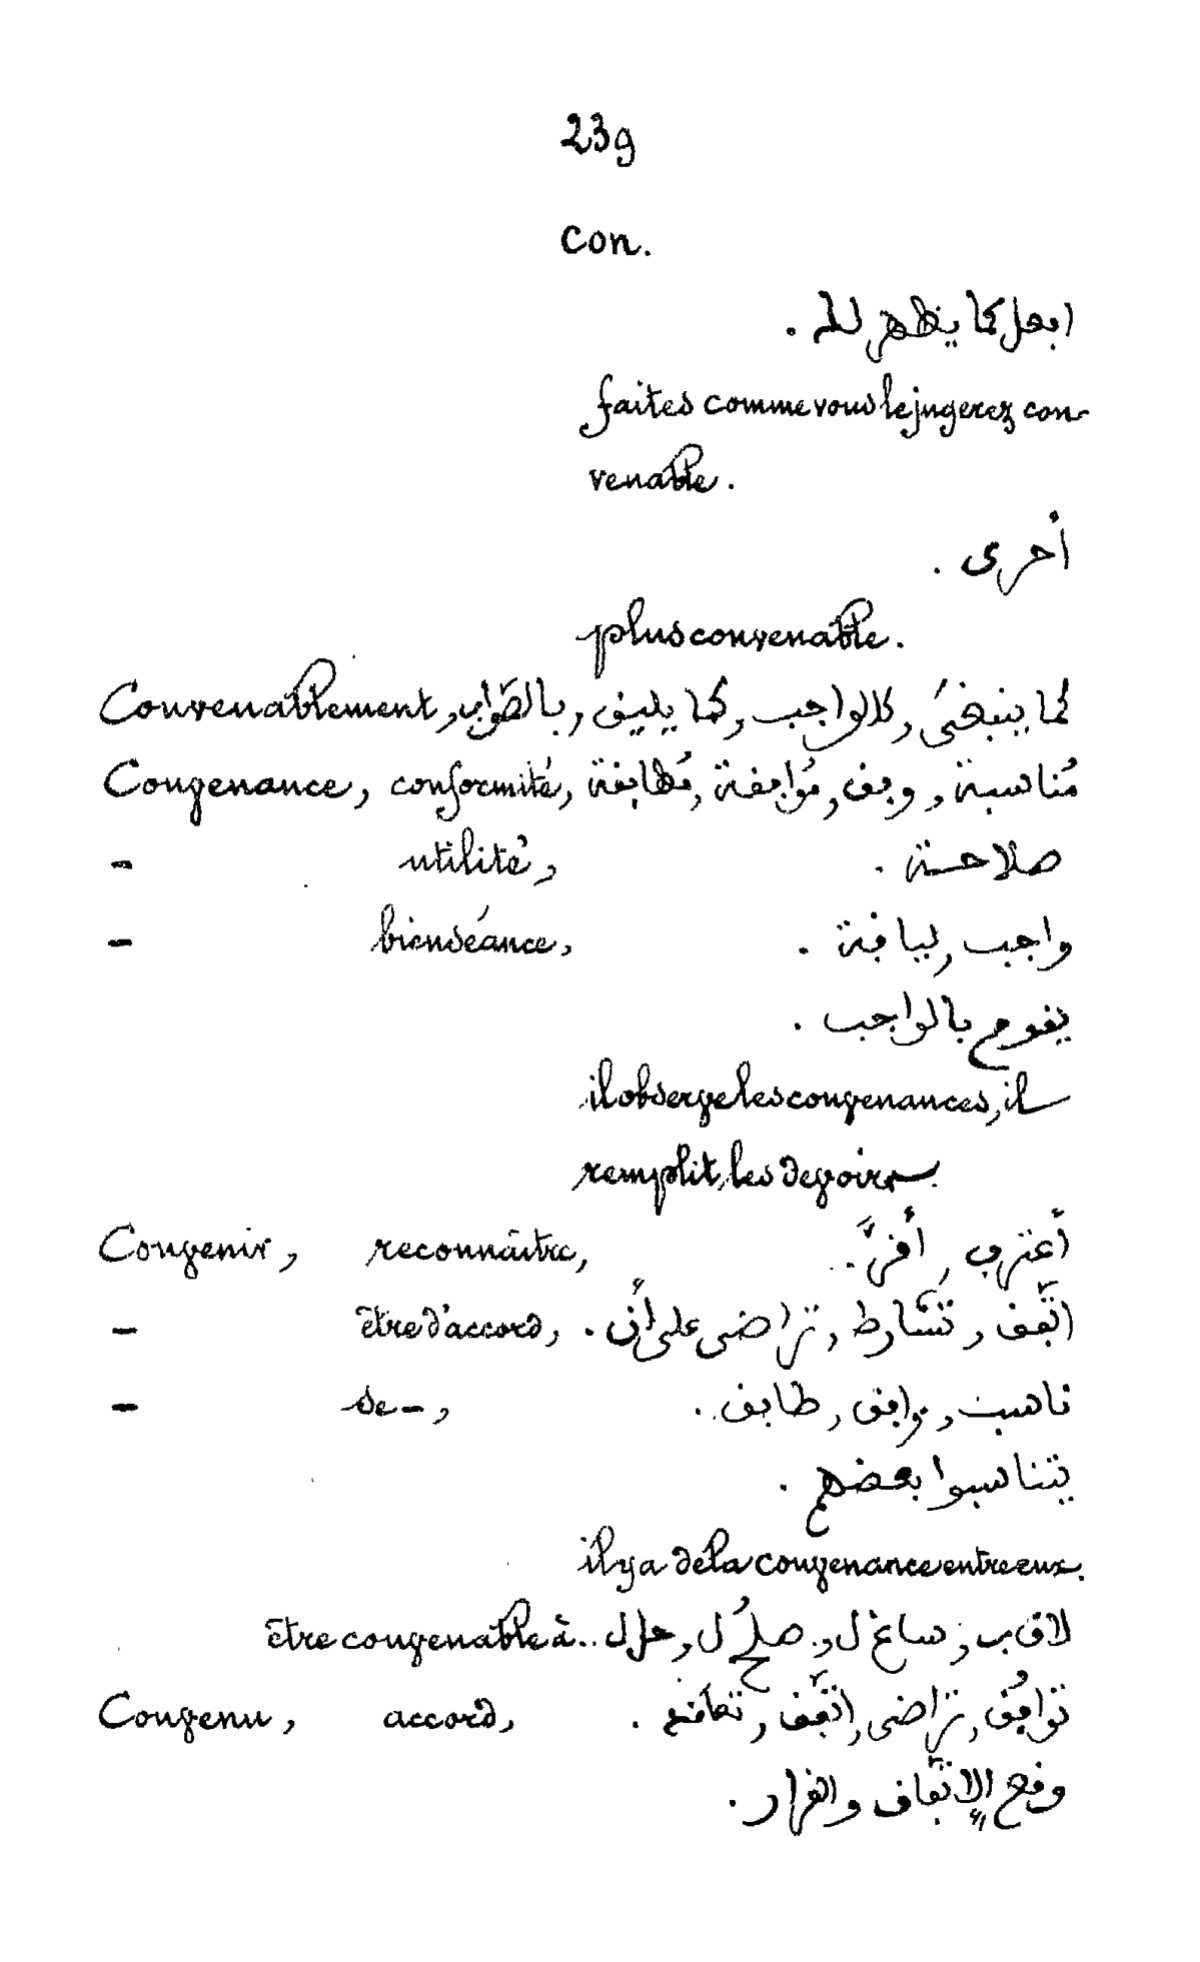 239
con.
افعل كما يظهر لك .
faites comme vous le jugerez con-
venable .
أحرى .
plus convenable .
Convenablement, كما ينبغي , كالواجب , كما يليق , بالصّواب
Convenance, conformité, مُناسبة , وفق , مُوافقة , مُطابقة
- utilité, صلاحة .
- bienséance, واجب , لياقة .
يقوم بالواجب .
il observe les convenances, il
remplit les devoirs.
Convenir, reconnaître, أعترف , أقرّ .
- être d'accord, اتّفق , تشارط , تراضى على أن .
- se -, ناسب , وافق , طابق .
يتناسبوا بعضهم .
il y a de la convenance entre eux.
être convenable à .. لاق ب , ساغ ل , صلُح ل , حل ل
Convenu, accord, توافُق , تراضى , اتّفق , .
وقع الإتّفاق والقرار .